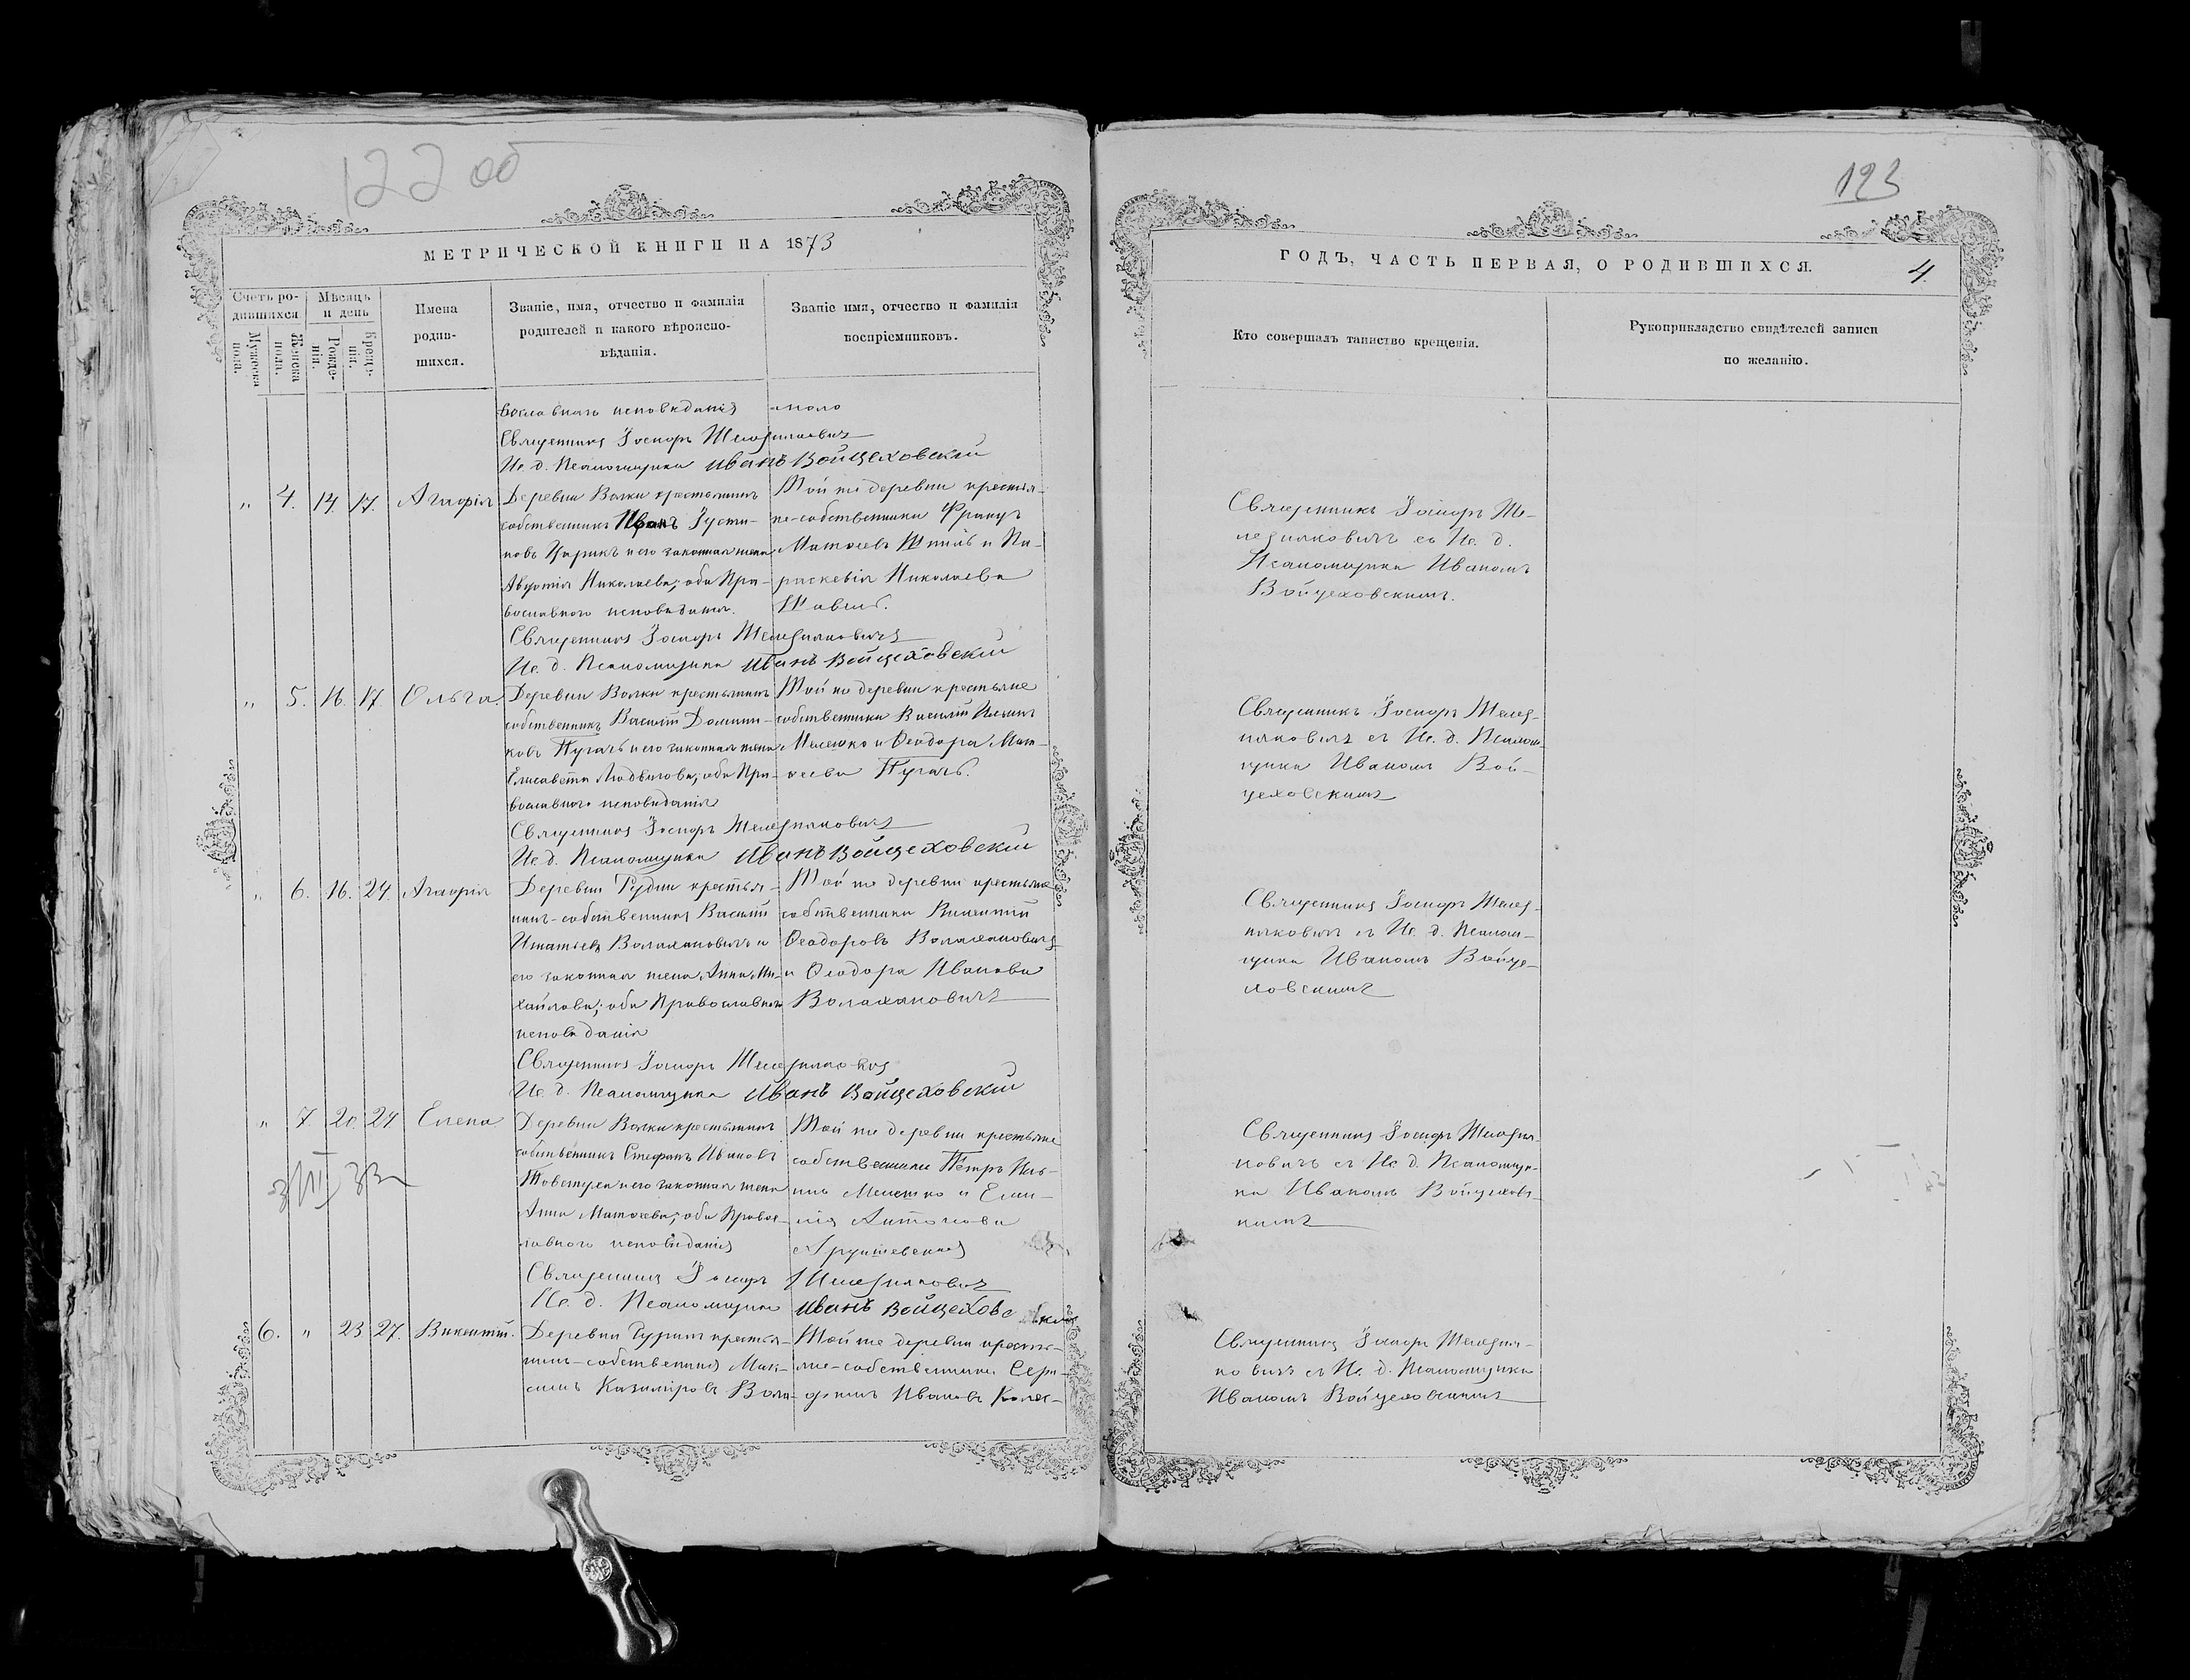 122 об
МЕТРИЧЕСКОЙ КНИГИ НА 1873
Счетъ ро-
дившихся
Мѣсяцъ
и день
Мужеска
пола.
Женска
пола.
Рожде-
нія.
Креще-
нія.
Имена
родив-
шихся.
Званіе, имя, отчество и фамилія
родителей и какого вѣроиспо-
вѣданія.
Званіе имя, отчество и фамилія
воспріемниковъ.
вославнаго исповѣданія
Священникъ Іосифъ
Ис. д. Псаломщика Иванъ Войцеховскій
„ 4. 14. 17. Агафія
Деревни Волки крестьянинъ
собственникъ Иванъ Іусти-
новъ Цирикъ и его законная жена
Авдотія Николаева; оба Пра-
вославнаго исповѣданія.
Той же деревни крестья-
не-собственники Францъ
Матѳеевъ и Па-
раскевія Николаева
Священникъ Іосифъ
Ис. д. Псаломщика Иванъ Войцеховскій
„ 5. 16. 17. Ольга.
Деревни Волки крестьянинъ
собственникъ Василій Домини-
ковъ Пугачъ и его законная жена
Елисавета Людвигова; оба Пра-
вославнаго исповѣданія
Той же деревни крестьяне
собственники Василій Ильинъ
Мелешко и Ѳеодора Мат-
ѳеева Пугачъ.
Священникъ Іосифъ
Ис. д. Псаломщика Иванъ Войцеховскій
„ 6. 16. 24. Агафія
Деревни Рудни крестья-
нинъ-собственникъ Василій
Игнатіевъ Волахановичъ и
его законная жена Анна Ми-
хайлова; оба Православнаго
исповѣданія
Той же деревни крестьяне
собственники Викентій
Ѳеодоровъ Волахановичъ
и Ѳеодора Иванова
Волахановичъ
Священникъ Іосифъ
Ис. д. Псаломщика Иванъ Войцеховскій
„ 7. 20. 24 Елена
Деревни Волки крестьянинъ
собственникъ Стефанъ Ивановъ
Товстуха и его законная жена
Анна Матѳеева; оба Правос-
лавнаго исповѣданія
Той же деревни крестьяне
собственники Петръ Иль-
инъ Мелешко и
Антонова
Священникъ Іосифъ
Ис. д. Псаломщика Иванъ Войцеховскій
6. „ 23 27. Викентій.
Деревни крестья-
нинъ-собственникъ Мак-
симъ Казиміровъ Вола-
Той же деревни крестья-
не-собственники Сера-
фимъ Ивановъ
123
ГОДЪ, ЧАСТЬ ПЕРВАЯ, О РОДИВШИХСЯ.
4.
Кто совершалъ таинство крещенія.
Рукоприкладство свидѣтелей записи
по желанію.
Священникъ Іосифъ
съ Ис. д.
Псаломщика Иваномъ
Войцеховскимъ.
Священникъ Іосифъ
съ Ис. д. Псалом-
щика Иваномъ Вой-
цеховскимъ
Священникъ Іосифъ
съ Ис. д. Псалом-
щика Иваномъ Войце-
ховскимъ
Священникъ Іосифъ
съ Ис. д. Псаломщи-
ка Иваномъ Войцеховс-
кимъ
Священникъ Іосифъ
съ Ис. д. Псаломщика
Иваномъ Войцеховскимъ